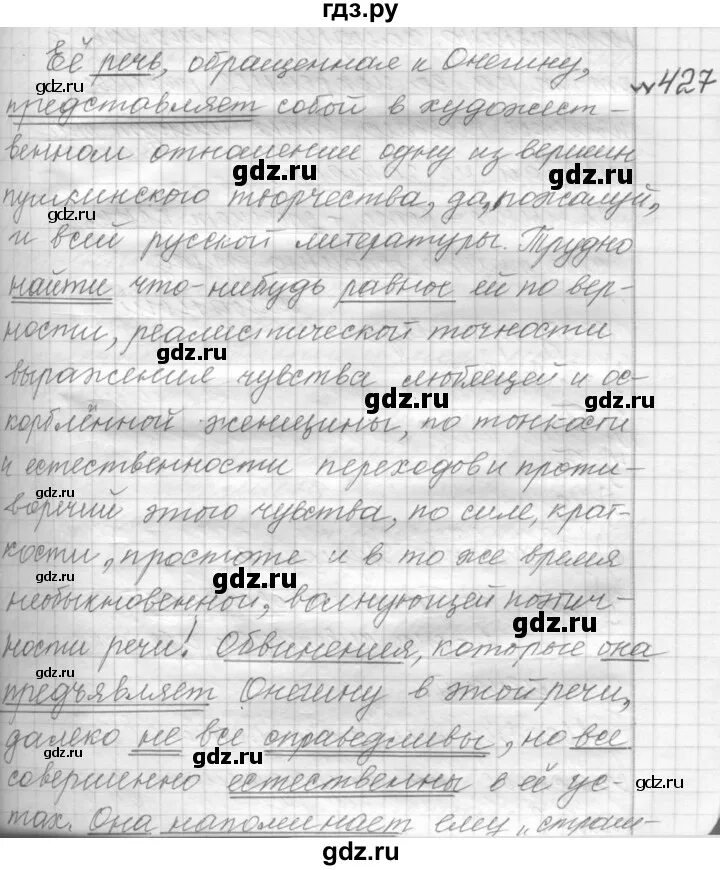 гдз.ру
Её речь, обращенная к Онегину,
№427
представляет собой в художест-
венном отношении одну из вершин
gdz.ru
gdz.ru
пушкинского творчества, да, пожалуй,
gdz.ru
и всей русской литературы. Трудно
найти что-нибудь равное ей по вер-
ности, реалистической точности
gdz.ru
выражения чувства любящей и ос-
gdz.ru
gdz.ru
корблённой женщины, по тонкости
и естественности переходов и проти-
gdz.ru
воречий этого чувства, по силе, крат-
кости, простоте и в то же время
gdz.ru
gdz.ru
необыкновенной, волнующей поэтич-
gdz.ru
ности речи! Обвинения, которые она
gdz.ru
предъявляет Онегину в этой речи,
далеко не все справедливы, но все
gdz.ru
совершенно естественны в её ус-
gdz.ru
тах. Она напоминает ему „строй-
gdz.ru